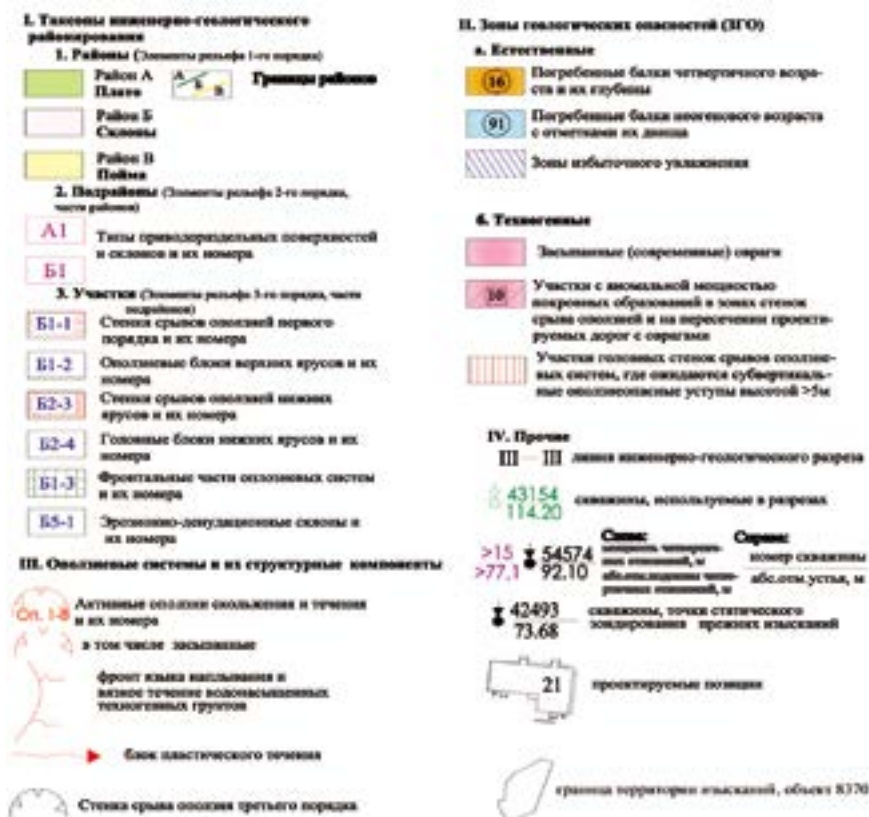 I. Таксоны инженерно-геологического
районирования
1. Районы (Элементы рельефа 1-го порядка)
Район А
Плато
А
Б
В
Границы районов
Район Б
Склоны
Район В
Пойма
2. Подрайоны (Элементы рельефа 2-го порядка,
части районов)
А1
Б1
Типы приводораздельных поверхностей
и склонов и их номера
3. Участки (Элементы рельефа 3-го порядка, части
подрайонов)
Б1-1
Стенки срывов оползней первого
порядка и их номера
Б1-2
Оползневые блоки верхних ярусов и их
номера
Б2-3
Стенки срывов оползней нижних
ярусов и их номера
Б2-4
Головные блоки нижних ярусов и их
номера
Б1-3
Фронтальные части оползневых систем
и их номера
Б5-1
Эрозионно-денудационные склоны и
их номера
III. Оползневые системы и их структурные компоненты
Оп. 1-8
Активные оползни скольжения и течения
и их номера
в том числе засыпанные
фронт языка наплывания и
вязкое течение водонасыщенных
техногенных грунтов
блок пластического течения
Стенка срыва оползня третьего порядка
II. Зоны геологических опасностей (ЗГО)
а. Естественные
16
Погребенные балки четвертичного возра-
ста и их глубины
91
Погребенные балки неогенового возраста
с отметками их днища
Зоны избыточного увлажнения
б. Техногенные
Засыпанные (современные) овраги
10
Участки с аномальной мощностью
покровных образований в зонах стенок
срыва оползней и на пересечении проекти-
руемых дорог с оврагами
Участки головных стенок срывов оползне-
вых систем, где ожидаются субвертикаль-
ные оползнеопасные уступы высотой >5м
IV. Прочие
III — III линия инженерно-геологического разреза
43154
114.20
скважины, используемые в разрезах
>15 54574
>77,1 92.10
Слева:
мощность четвертич-
ных отложений, м
абс.отм.подошвы четве-
ртичных отложений, м
Справа:
номер скважины
абс.отм.устья, м
42493
73.68
скважины, точки статического
зондирования прежних изысканий
21
проектируемые позиции
граница территории изысканий, объект 8370